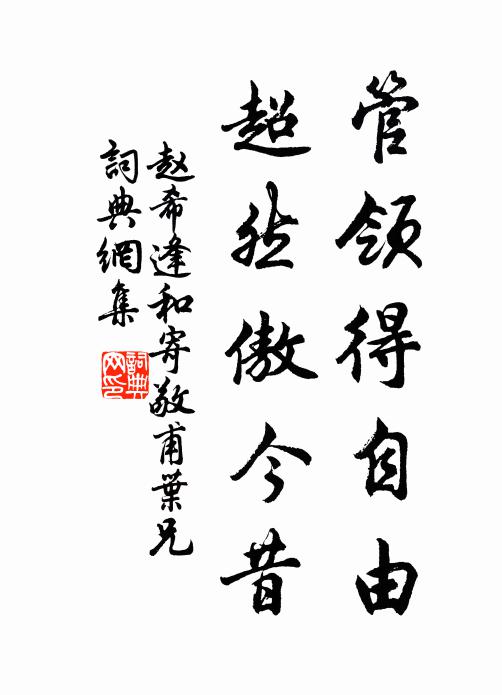 管領得自由
超然傲今昔
赵希逢和寄敬甫葉兄
詞典網集
詞典
网印